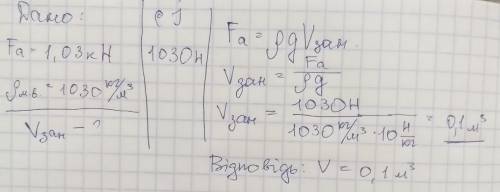 Дано:
Fa - 1,03 кН
ρмв = 1030 кг/м³
Vзан - ?
СІ
1030Н
Fa = ρgVзан.
Vзан = Fa/ρg
Vзан = 1030Н/1030 кг/м³ · 10 Н/кг = 0,1 м³
Відповідь: V = 0,1 м³